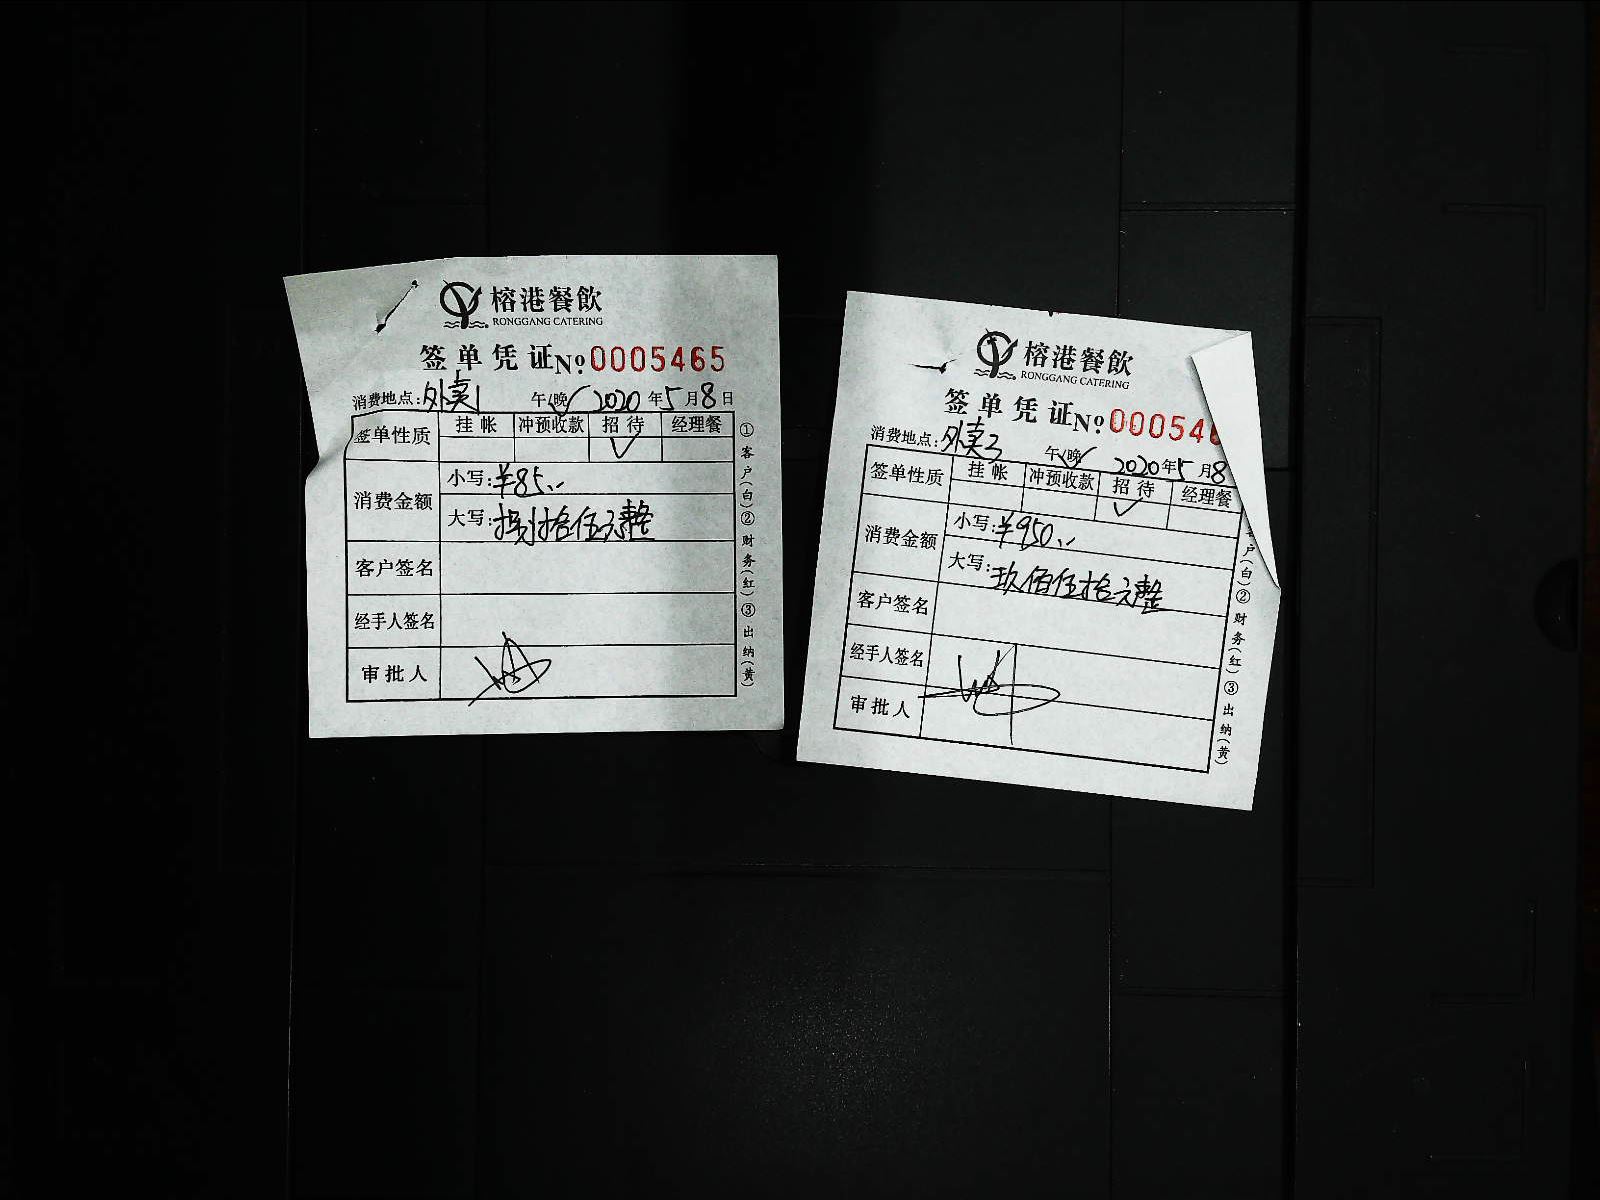 榕港餐飲
RONGGANG CATERING
签单凭证 №0005465
消费地点:外卖1 午(晚)✓ 2020年5月8日
签单性质 挂帐 冲预收款 招待 经理餐
✓
消费金额
小写:¥85.--
大写:捌拾伍元整
客户签名
经手人签名
审批人
①客户(白)②财务(红)③出纳(黄)
榕港餐飲
RONGGANG CATERING
签单凭证 №000546
消费地点:外卖3 午(晚)✓ 2020年5月8
签单性质 挂帐 冲预收款 招待 经理餐
✓
消费金额
小写:¥950.--
大写:玖佰伍拾元整
客户签名
经手人签名
审批人
户(白)②财务(红)③出纳(黄)